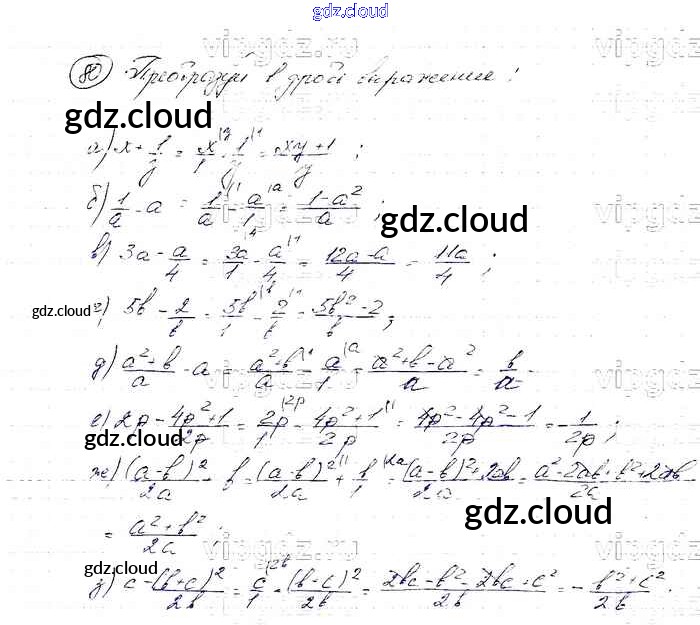 gdz.cloud
80 Преобразуй в дробь выражение:
gdz.cloud
а) x + 1/y = x/1 |y + 1/y |1 = xy+1/y ;
б) 1/a - a = 1/a |1 - a/1 |a = 1-a²/a ;
gdz.cloud
в) 3a - a/4 = 3a/1 |4 - a/4 |1 = 12a-a/4 = 11a/4 ;
gdz.cloud
г) 5b - 2/b = 5b/1 |b - 2/b |1 = 5b²-2/b ;
д) a²+b/a - a = a²+b/a |1 - a/1 |a = a²+b-a²/a = b/a .
е) 2p - 4p²+1/2p = 2p/1 |2p - 4p²+1/2p |1 = 4p²-4p²-1/2p = -1/2p ;
gdz.cloud
ж) (a-b)²/2a + b = (a-b)²/2a |1 + b/1 |2a = (a-b)²+2ab/2a = a²-2ab+b²+2ab/2a
= a²+b²/2a ;
gdz.cloud
з) c - (b+c)²/2b = c/1 |2b - (b+c)²/2b = 2bc-b²-2bc-c²/2b = - b²+c²/2b .